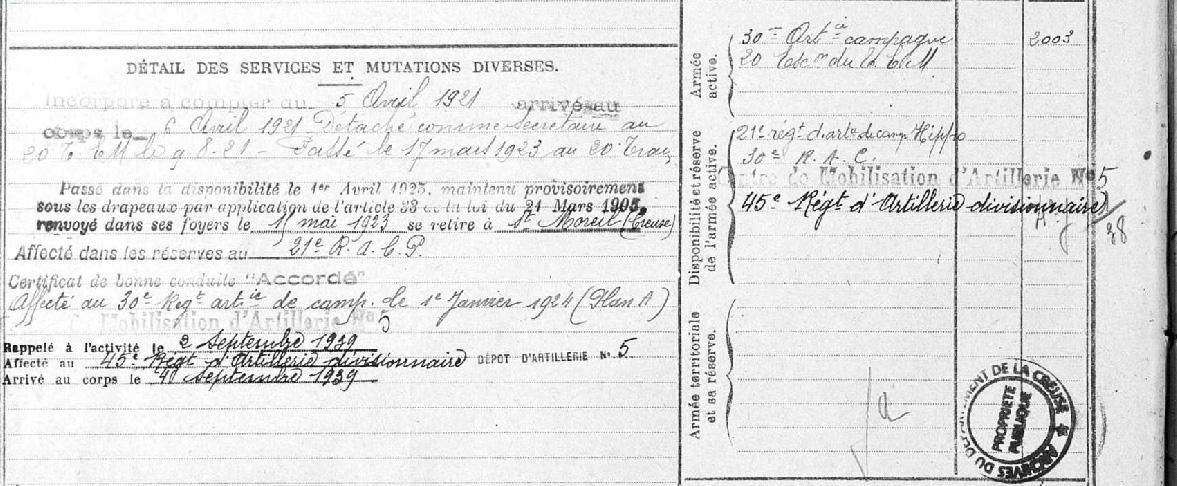 DÉTAIL DES SERVICES ET MUTATIONS DIVERSES.
Incorporé à compter du 5 Avril 1921 arrivé au
corps le 6 Avril 1921 Détaché comme Secrétaire au
20 8.21 - Passé le 17 mars 1923 au 20 Train
Passé dans la disponibilité le 1er Avril 1923, maintenu provisoirement
sous les drapeaux par application de l'article 33 de la loi du 21 Mars 1905,
renvoyé dans ses foyers le mai 1923 se retire à (Creuse)
Affecté dans les réserves au 21e R.A.C.P.
Certificat de bonne conduite "Accordé"
Affecté au 30e Regt artie de camp. le 1er Janvier 1924 (Plan A)
Mobilisation d'Artillerie N° 5
Rappelé à l'activité le 2 Septembre 1939
Affecté au 45e Régt d'Artillerie divisionnaire DÉPOT D'ARTILLERIE N° 5
Arrivé au corps le Septembre 1939
Armée active.
30e Artie campagne 2003
20 Escon du
Disponibilité et réserve de l'armée active.
21e régt d'artie de camp Hippo
30e R.A.C.
Centre de Mobilisation d'Artillerie N° 5
45e Régt d'Artillerie divisionnaire
38
Armée territoriale et sa réserve.
ARCHIVES DU DÉPARTEMENT DE LA CREUSE
PROPRIÉTÉ PUBLIQUE